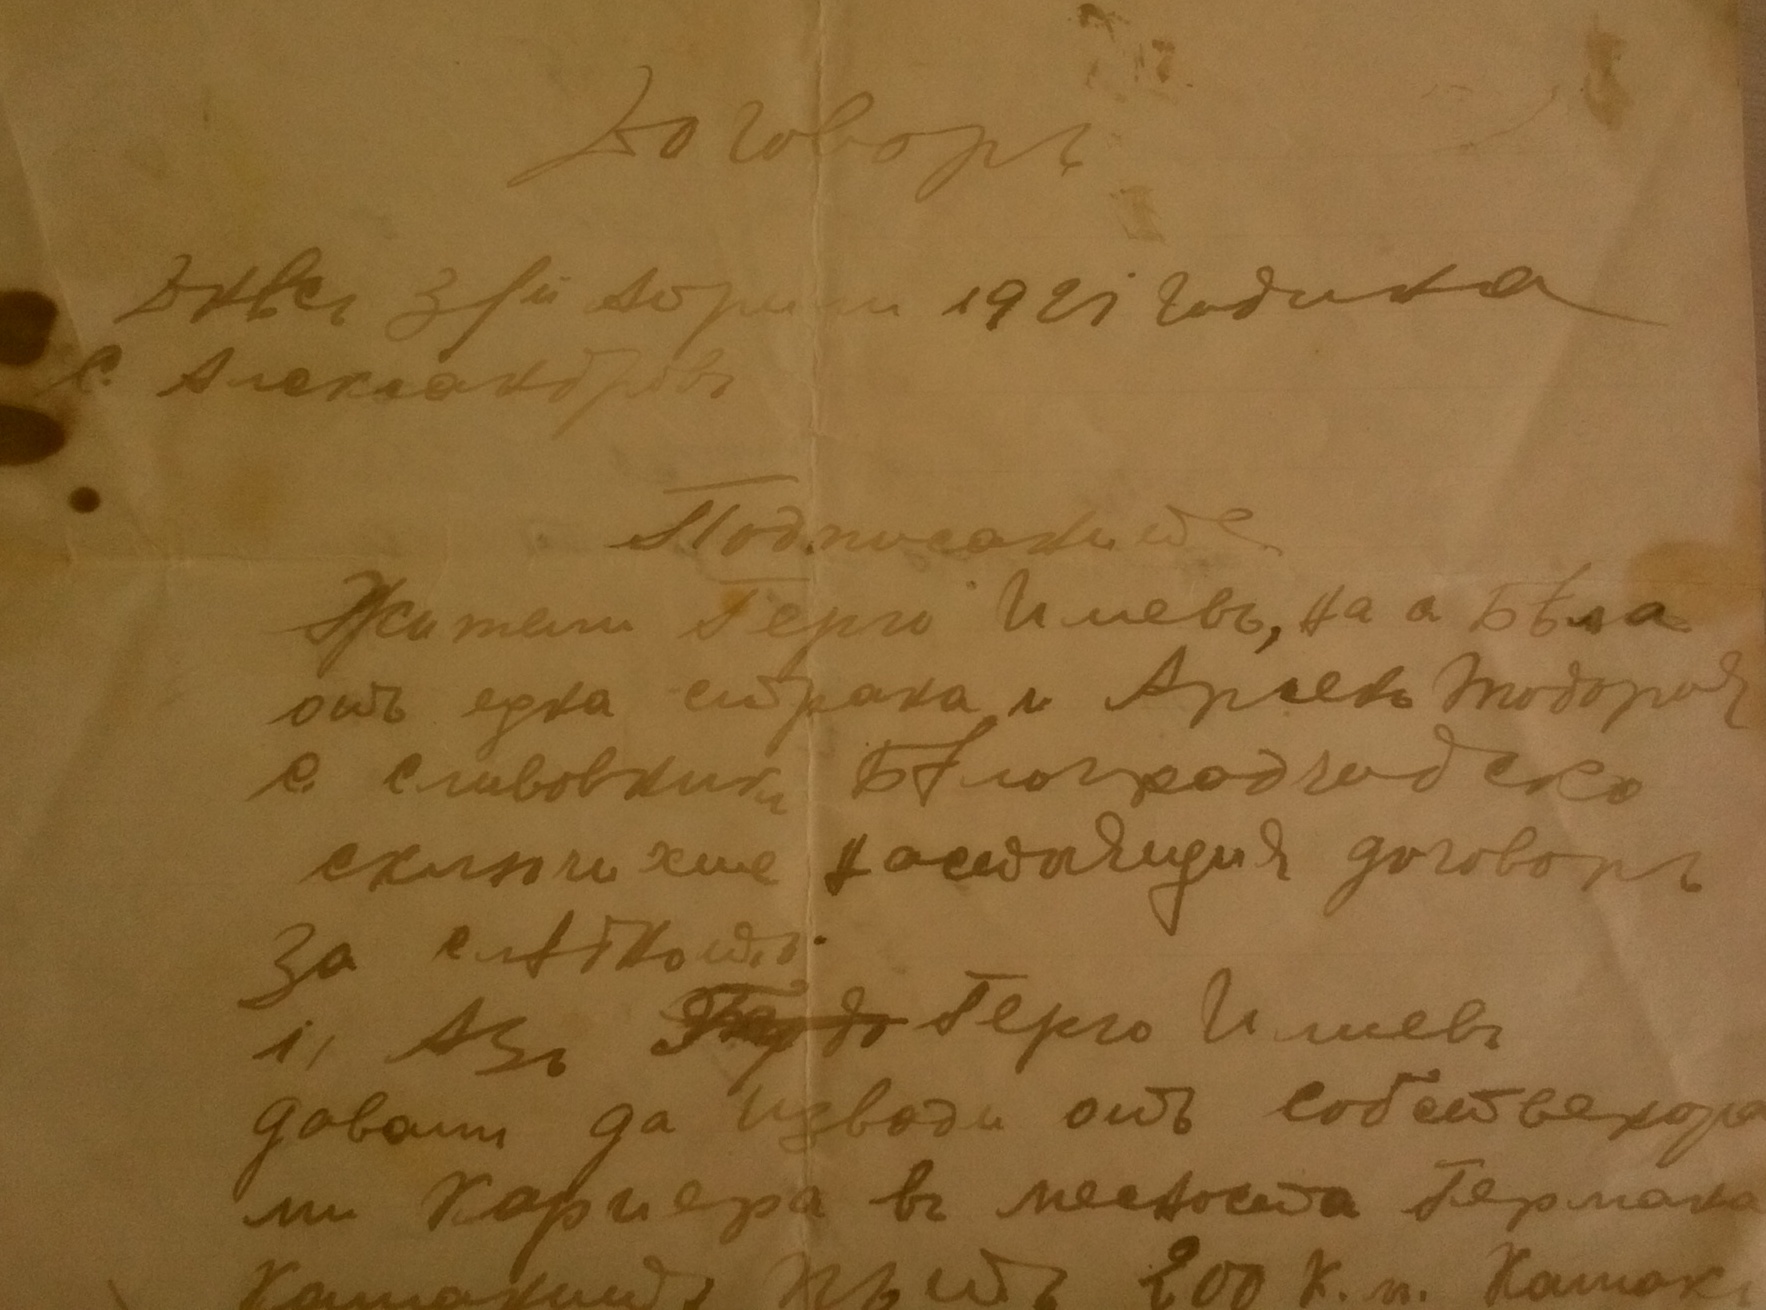 Договоръ
Днесъ 3/й Априлъ 1921 година
с. Александрово
Подписаните
Жители Герго Илиевъ, на с Бѣла
отъ една страна и Арсенъ Тодоровъ
с. Сливовникъ Бѣлоградчидско
сключихме настоящия договоръ
за слѣдното:
1, Азъ Герго Илиевъ
давамъ да изводи отъ собствено
ми Кариера въ месноста Германа
200 К.м. Камъкъ